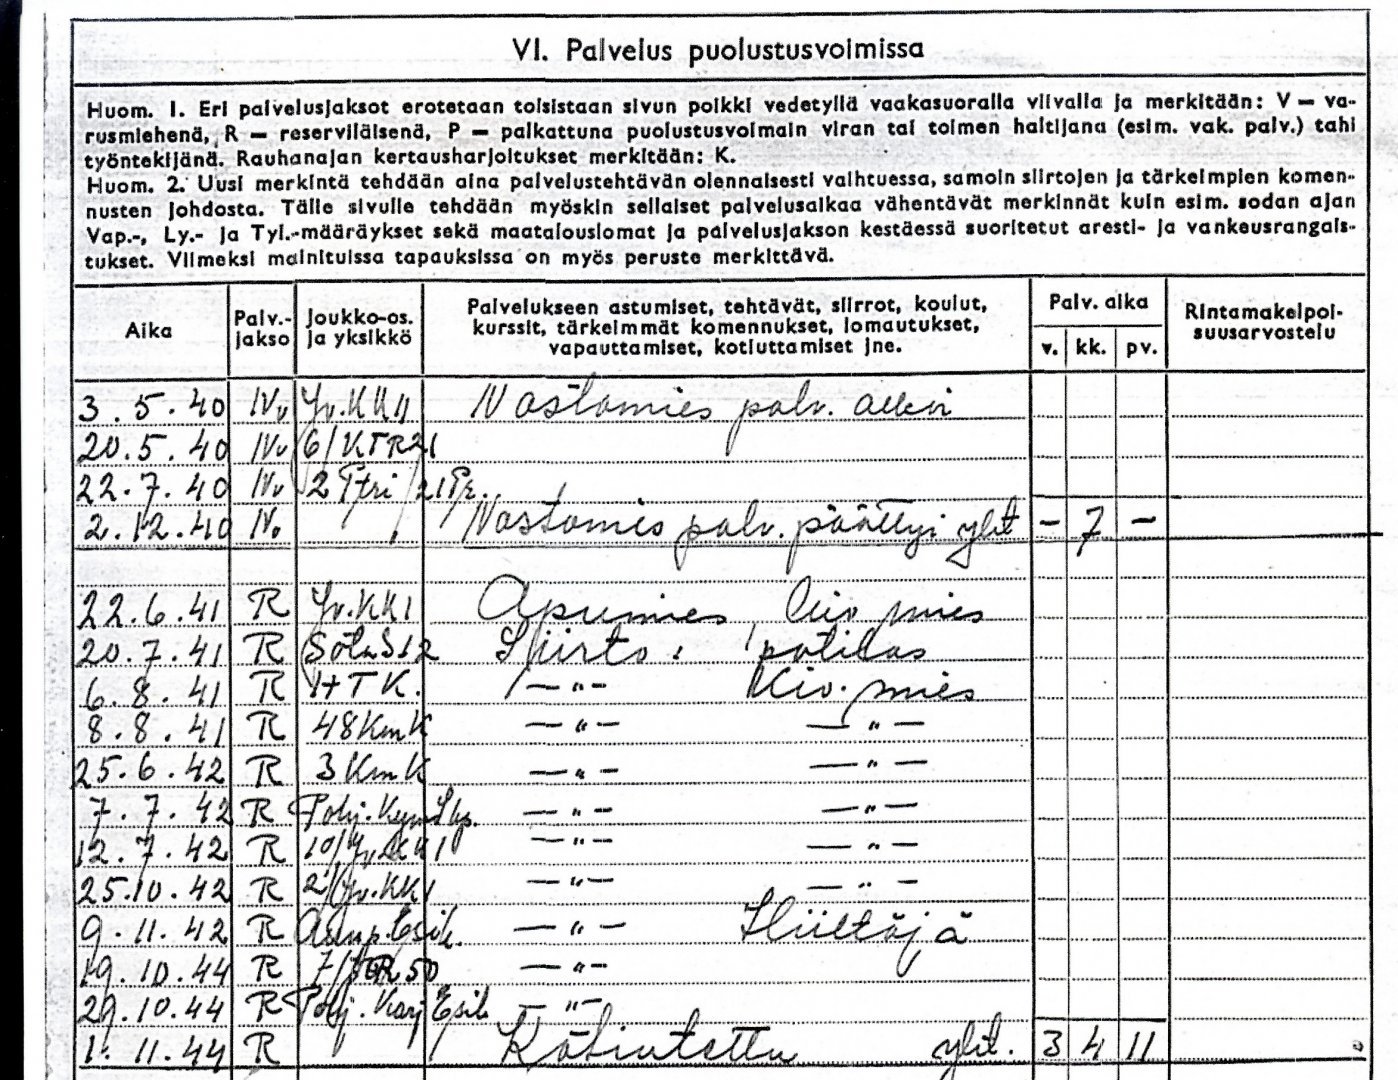 VI. Palvelus puolustusvoimissa
Huom. 1. Eri palvelusjaksot erotetaan toisistaan sivun poikki vedetyllä vaakasuoralla viivalla ja merkitään: V — va-
rusmiehenä, R — reserviläisenä, P — palkattuna puolustusvoimain viran tai toimen haltijana (esim. vak. palv.) tahi
työntekijänä. Rauhanajan kertausharjoitukset merkitään: K.
Huom. 2. Uusi merkintä tehdään aina palvelustehtävän olennaisesti vaihtuessa, samoin siirtojen ja tärkeimpien komen-
nusten johdosta. Tälle sivulle tehdään myöskin sellaiset palvelusaikaa vähentävät merkinnät kuin esim. sodan ajan
Vap.-, Ly.- ja Tyl.-määräykset sekä maatalouslomat ja palvelusjakson kestäessä suoritetut aresti- ja vankeusrangais-
tukset. Viimeksi mainituissa tapauksissa on myös peruste merkittävä.
Aika
Palv.-
jakso
Joukko-os.
ja yksikkö
Palvelukseen astumiset, tehtävät, siirrot, koulut,
kurssit, tärkeimmät komennukset, lomautukset,
vapauttamiset, kotiuttamiset jne.
Palv. aika
v. kk. pv.
Rintamakelpoi-
suusarvostelu
3.5.40 Jv.KK11 Nostomies palv. alkoi
20.5.40 6/KTR21
22.7.40 2 Ptri/21Pr.
2.12.40 Nostomies palv. päättyi yht — 7 —
22.6.41 R Jv.KK1 Apumies,
20.7.41 R SotaS12 Siirto: potilas
6.8.41 R 1+TK. —"— Kiv. mies
8.8.41 R 48KmK —"— —"—
25.6.42 R 3KmK —"— —"—
7.7.42 R —"— —"—
12.7.42 R 10/Jv.KK1 —"— —"—
25.10.42 R 2/Jv.KK1 —"— —"—
9.11.42 R —"—
19.10.44 R —"—
29.10.44 R Pohj.Karj Esik —"—
1.11.44 R Kotiutettu yht. 3 4 11